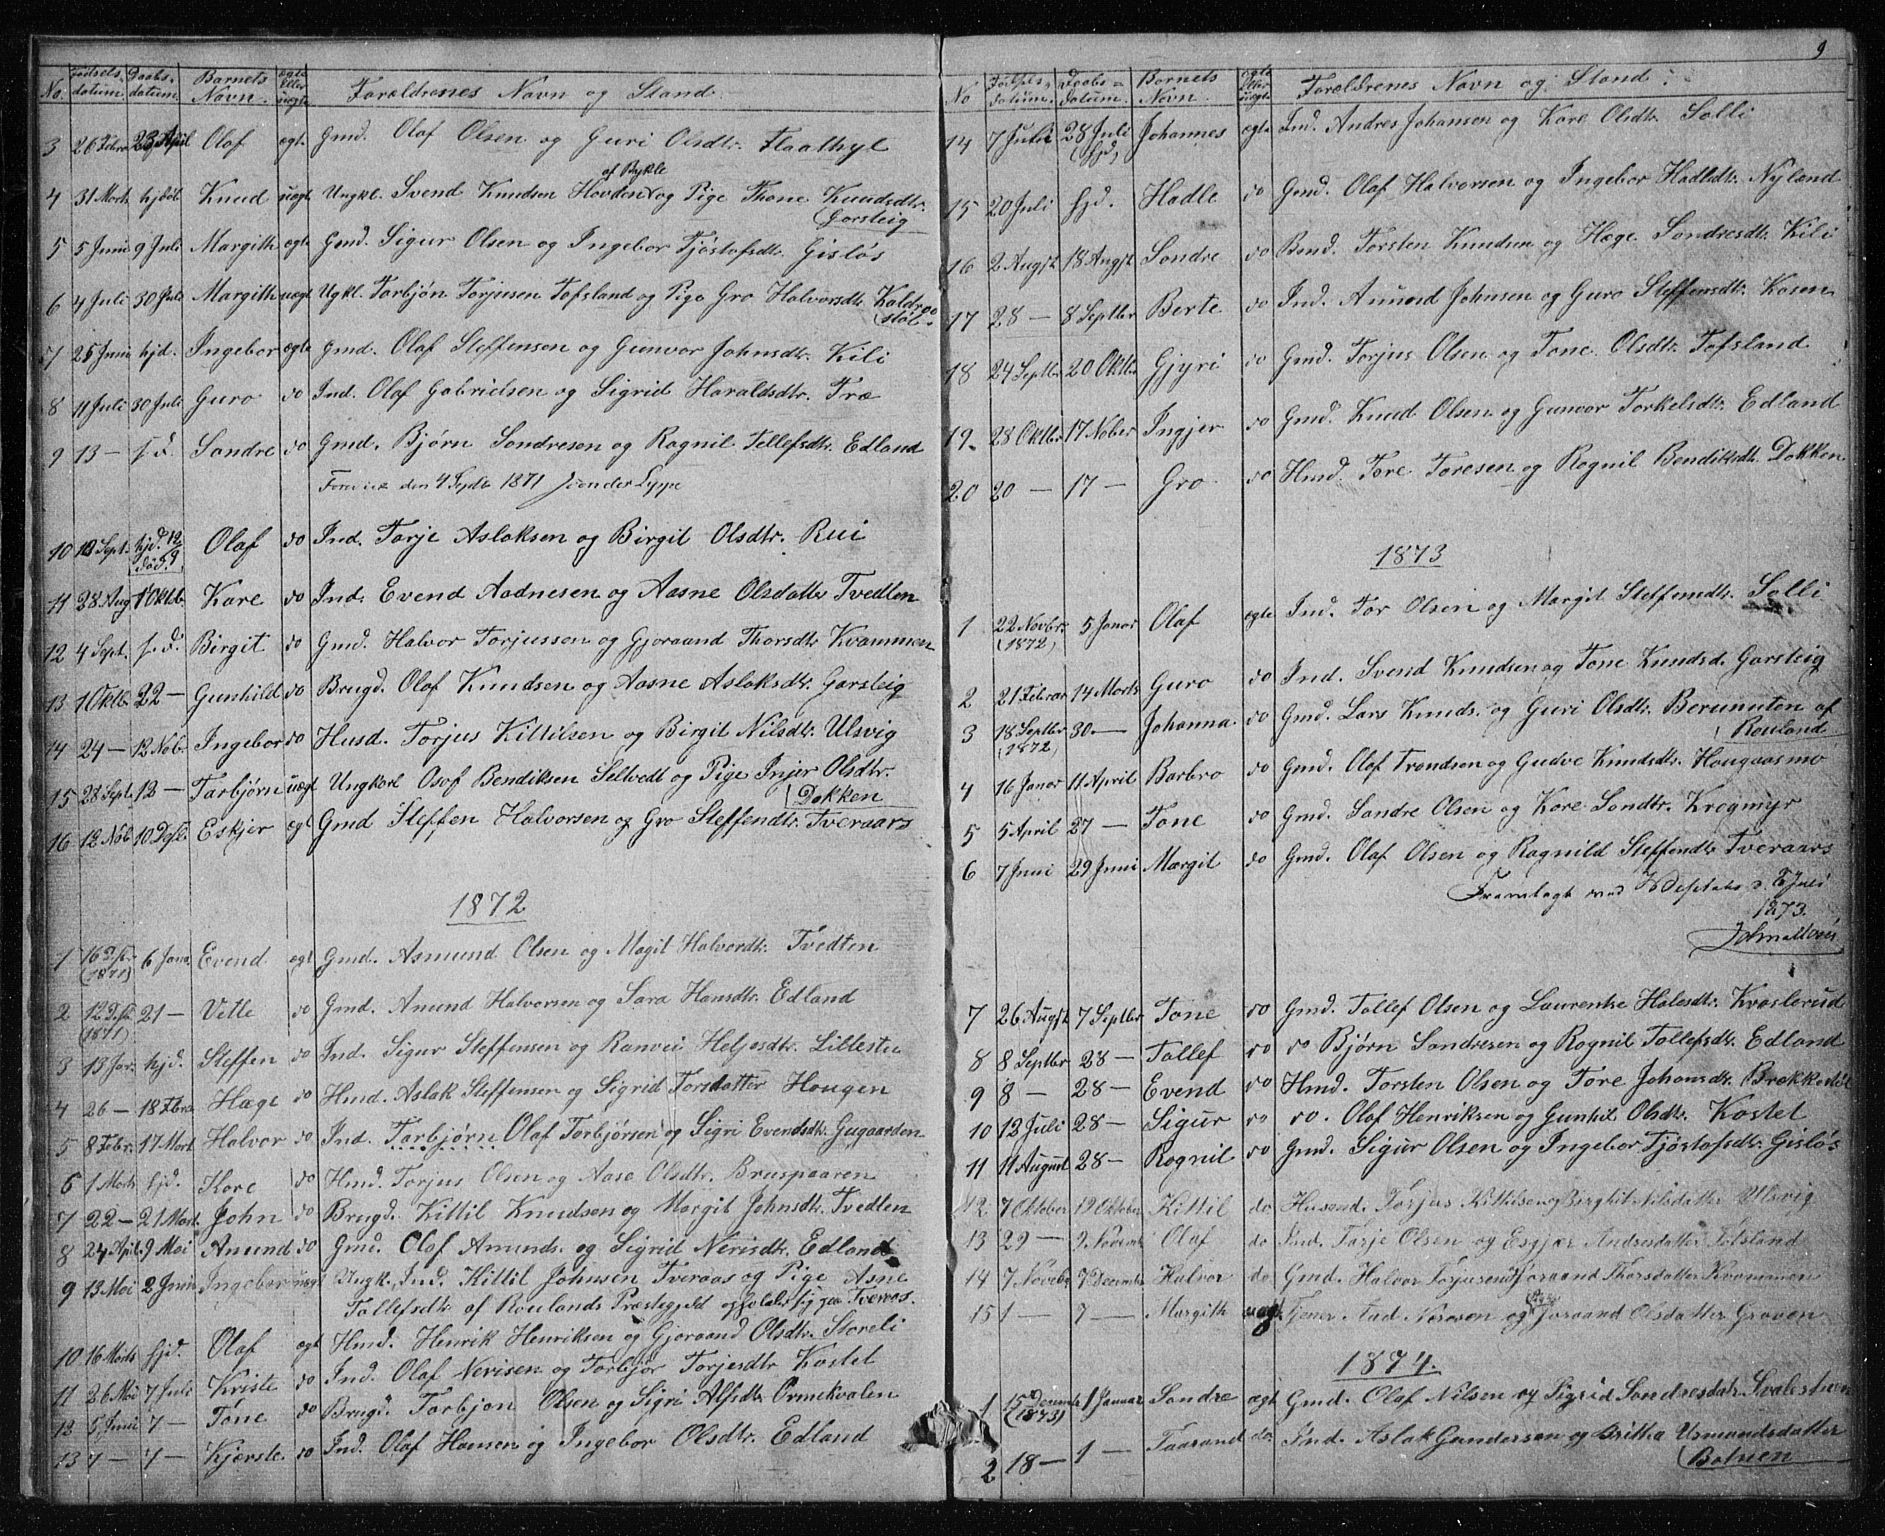 No. Fødsels-datum. Daabs-datum. Barnets Navn. ægte Eller uægte Forældrenes Navn og Stand.
3 26 Febr. 23 April Olaf ægt. Gmd. Olaf Olsen og Guri Olsdtr. Flaathyl
af Bykle
4 31 Marts hjdøb. Knud uægt Ungkl. Svend Knudsen Hovden og Pige Thone Knudsdtr.
Garsteig
5 5 Juni 9 Juli Margith ægte Gmd. Sigur Olsen og Ingebor Tjøstofsdtr. Gisløs
6 4 Juli 30 Juli Margith uægt Ugkl. Torbjøn Torjusen Tofsland og Pige Gro Halvorsdtr. Koldros
støl
7 25 Juni hjd. Ingebor ægte Gmd. Olaf Steffensen og Gunvor Johnsdtr. Kili
8 11 Juli 30 Juli Guro do Ind. Olaf Gabrielsen og Sigrid Haraldsdtr. Træ
9 13 — s. d. Sondre do Gmd. Bjørn Sondresen og Ragnil Tellefsdtr. Edland
den 4 Septbr 1871
10 12 Sept. hjd. 12 død 9 Olaf do Ind. Torje Aslaksen og Birgit Olsdtr. Rui
11 28 Aug 1 Oktb. Kare do Ind. Evend Aadnesen og Aasne Olsdatter Tvedten
12 4 Sept. s. d. Birgit do Gmd. Halvor Torjussen og Gjoraand Thorsdtr. Kvammen
13 1 Oktb. 22 — Gunhild do Brugd. Olaf Knudsen og Aasne Aslaksdtr. Garsteig
14 24 — 12 Nob. Ingebor do Husd. Torjus Kittilsen og Birgit Nilsdtr. Ulsvig
15 28 Sept. 12 — Tarbjørn uægt Ungkarl Osof Bendiksen Seltvedt og Pige Injer Olsdtr.
Dokken
16 12 Nob. 10 Desb. Eskjer ægt Gmd Steffen Halvorsen og Gro Steffendtr. Tveraars
1872
1 16 Desbr (1871) 6 Jana. Evend ægt Gmd. Asmund Olsen og Magit Halvordtr. Tvedten
2 12 Desbr (1871) 21 — Vetle do Gmd. Amund Halvorsen og Sara Hansdtr. Edland
3 13 Jar. hjd. Steffen do Ind. Sigur Steffensen og Ranvei Heljesdtr. Lillestu
4 26 — 18 Febr. Hæge do Hmd. Aslak Steffensen og Sigrid Torsdatter Hougen
5 8 Febr. 17 Mart Halvor do Ind. Tarbjørn Olaf Torbjørsen og Sigri Evendsdtr. Gugaarden
6 1 Marts hjd. Kare do Hmd. Torjus Olsen og Aase Olsdtr. Bruspaaren
7 22 — 21 Mart. John do Brugd. Kittil Knudsen og Margit Johnsdtr. Tvedten
8 24 Apil. 9 Mai Amund do Gmd. Olaf Amunds. og Sigrid Nerisdtr. Edland
9 13 Mai 2 Juni Ingebor uægt Ungk. Ind. Kittil Johnsen Tveraas og Pige Asne
Tallefsdtr af Roulands Præstegjeld opholder sig paa Tveraas.
10 16 Marts hjd. Olaf ægt Hmd. Henrik Henriksen og Gjoraand Olsdtr. Storeli
11 26 Mai 7 Juli Kriste do Ind. Olaf Nerisen og Torbjør Torjesdtr Kostet
12 5 Juni 7 — Tone do Brugd. Torbjøn Olsen og Sigri Alfsdtr Ormekvalen
13 7 — 7 — Kjerste do Ind. Olaf Hansen og Ingebor Olsdtr. Edland
9
No Fødsels-datum. Daabs-datum. Barnets Navn. ægte Eller uægte Forældrenes Navn og Stand.
14 7 Juli 28 Juli (hjd) Johannes ægte Ind. Andres Johansen og Kare Olsdtr. Solli
15 20 Juli hjd. Hadle do Gmd. Olaf Halvorsen og Ingebor Hadlsdtr. Nyland
16 2 Augst 18 Augst Sondre do Bmd. Torsten Knudsen og Hæge Sondresdtr. Kili
17 28 — 8 Septbr Berte do Ind. Amund Johnsen og Guro Steffensdtr. Kosen
18 24 Septbr 20 Oktbr Gjyri do Gmd. Torjus Olsen og Tone Olsdtr. Tofsland
19. 28 Oktbr 17 Nober Ingjer do Gmd. Knud Olsen og Gunvor Torkelsdtr. Edland
20 20 — 17 — Gro do Hmd. Tore Toresen og Ragnil Bendiksdtr. Dokken
1873
1 22 Novbr. (1872) 5 Janar Olaf ægte Ind. Tor Olsen og Margit Steffensdtr. Solli
2 21 Februar 14 Marts Guro do Ind. Svend Knudsen og Tone Knudsd. Garsteig
3 18 Septbr (1872) 30 — Johanna. do Gmd. Lars Knuds. og Guri Olsdtr. Berunuten af
Rouland
4 16 Janar 11 April Barbro do Gmd. Olaf Trondsen og Gudve Knudsdtr. Hougaasmo
5 5 April 27 — Tone do Gmd. Sondre Olsen og Kare Sondtr. Krogmyr
6 7 Juni 29 Juni Margit do Gmd. Olaf Olsen og Ragnild Steffendtr Tveraars
Fremlagt ved
1873.
7 26 Augst 7 Septbr Tone do Gmd. Tallef Olsen og Laurentse Halesdtr. Kvaslerud
8 8 Septbr 28 — Tallef do do Bjørn Sondresen og Ragnil Tallefsdtr. Edland
9 8 — 28 — Evend do Hmd. Torsten Olsen og Tore Johansdtr. Brekkestøl
10 12 Juli 28 — Sigur do do. Olaf Henriksen og Gunhil Olsdtr. Kostet
11 11 August 28 — Ragnil do Gmd. Sigur Olsen og Ingebor Tjøstofsdtr. Gisløs
12 7 Oktober 19 Oktober Kittil do Husmd. Torjus Kittilsen og Berghit Nilsdatter Ulsvig
13 29 — 9 Novemb Olaf do Ind. Tarje Olsen og Esgjær Andresdatter Tofsland
14 7 Novebr 7 December Halvor do Gmd. Halvor Torjusen Gjoraand Thorsdatter Kvammen
15 1 — 7 — Margith uægt. Tjener Aad Neresen og Pige Joraand Olsdatter Groven
1874.
1 15 December (1873) 1 Januar Sondre ægt Gmd. Olaf Nilsen og Sigrid Sondresdatr. Svalestuen
2 18 — 1 — Taarand do. Ind. Aslak Gundersen og Britha Usmundsdatter
Botnen